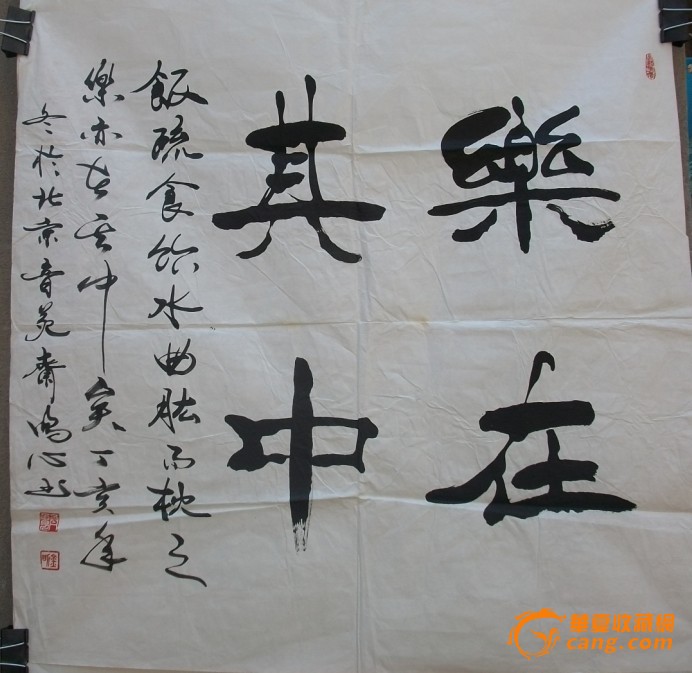 樂在
其中
飯疏食飲水曲肱而枕之
樂亦在其中矣丁亥年
冬於北京音苑齋鴻心書
華夏收藏網
cang.com